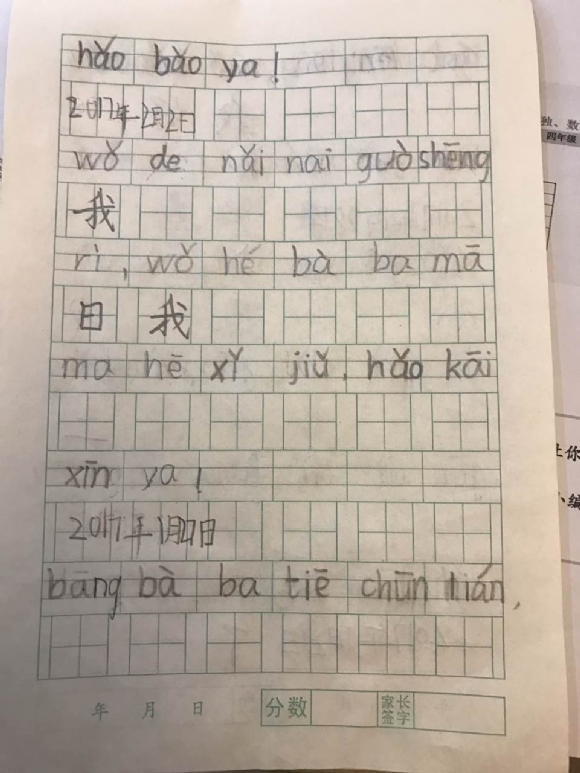 hǎo bǎo ya!
2017年2月2日
wǒ de nǎi nai guò shēng
我
rì, wǒ hé bà ba mā
日 我
ma hē xǐ jiǔ, hǎo kāi
xīn ya!
2017年1月27日
bāng bà ba tiē chūn lián,
年 月 日 分数 家长签字
独、数
四年级
上你
小编